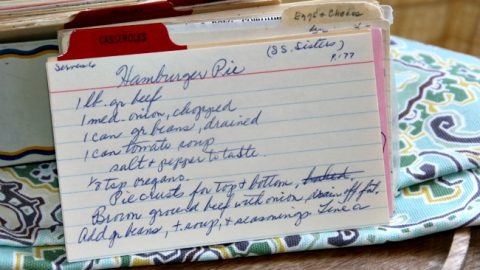 Eggs & Cheese
CASSEROLES
Serves 6
(S.S. Sisters)
P. 177
Hamburger Pie
1 lb. gr beef
1 med. onion, chopped
1 can gr beans, drained
1 can tomato soup
salt & pepper to taste.
1/2 tsp oregano.
Pie crusts for top & bottom, baked.
Brown ground beef with onion, drain off fat.
Add gr beans, + soup, & seasonings. Line a